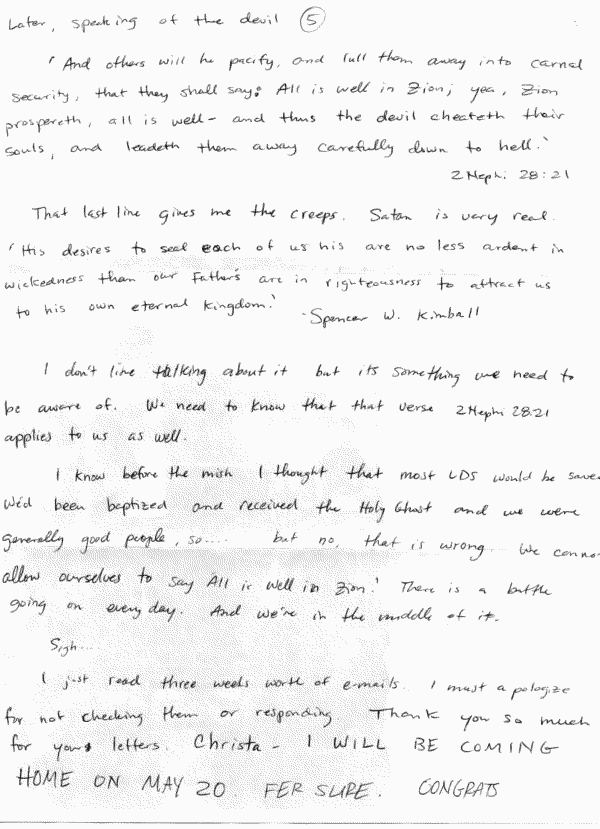 Later, speaking of the devil 5
'And others will he pacify, and lull them away into carnal
security, that they shall say: All is well in Zion; yea, Zion
prospereth, all is well - and thus the devil cheateth their
souls, and leadeth them away carefully down to hell.'
2 Nephi 28:21
That last line gives me the creeps. Satan is very real.
'His desires to seal each of us his are no less ardent in
wickedness than our Father's are in righteousness to attract us
to his own eternal kingdom.'
-Spencer W. Kimball
I don't like talking about it but its something we need to
be aware of. We need to know that that verse 2 Nephi 28:21
applies to us as well.
I know before the mish I thought that most LDS would be save
We'd been baptized and received the Holy Ghost and we were
generally good people, so.... but no, that is wrong. We canno
allow ourselves to say All is well in Zion! There is a battle
going on everyday. And we're in the middle of it.
Sigh....
I just read three weeks worth of e-mails. I must apologize
for not checking them or responding. Thank you so much
for your letters. Christa - I WILL BE COMING
HOME ON MAY 20 FER SURE. CONGRATS